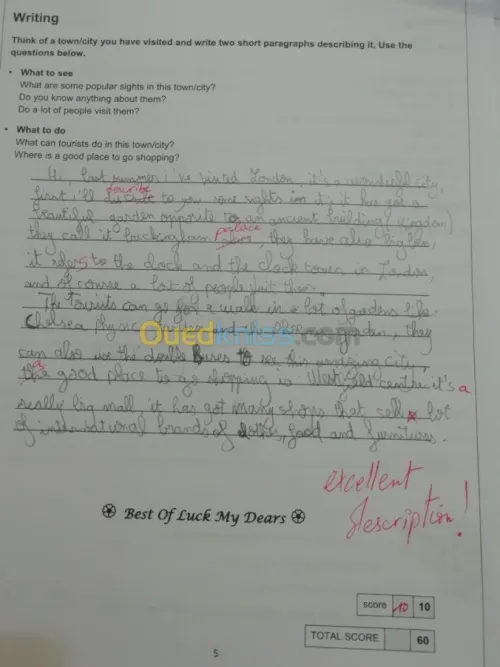 Writing
Think of a town/city you have visited and write two short paragraphs describing it. Use the
questions below.
• What to see
What are some popular sights in this town/city?
Do you know anything about them?
Do a lot of people visit them?
• What to do
What can tourists do in this town/city?
Where is a good place to go shopping?
Hi, last summer i've visited London, it's a city,
first i'll describe to you some sights in it, it has got a
beautiful garden opposite to an ancient building
they call it Buckingham palace, they have also
it refers to the clock and the clock tower in London,
and of course a lot of people them.
The Tourists can go for a walk in a lot of gardens like
Chelsea physic garden and garden, they
can also use the double Buses to see this amazing city,
a good place to go shopping is centre it's a
really big mall, it has got many shops that sell lot
of brands of clothes, food and furnitures.
Ouedkniss.com
excellent
description!
Best Of Luck My Dears
score 10 10
TOTAL SCORE 60
5